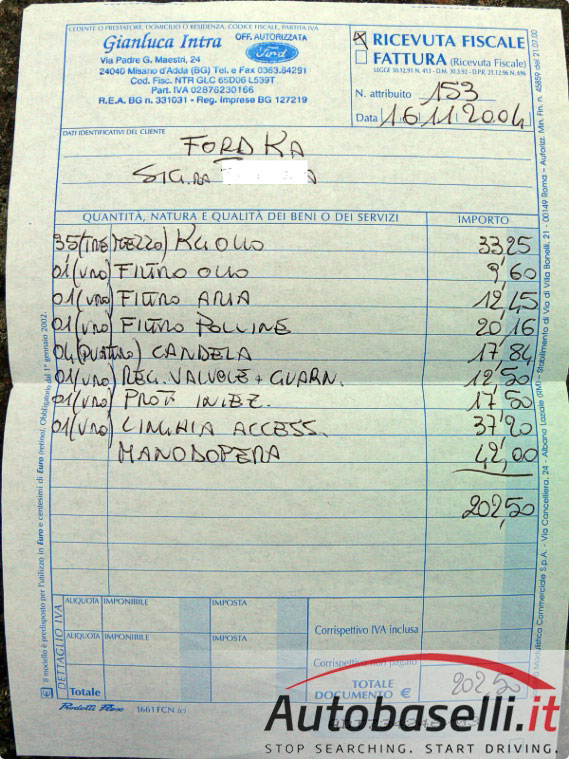 CEDENTE O PRESTATORE, DOMICILIO O RESIDENZA, CODICE FISCALE, PARTITA IVA
Gianluca Intra
OFF. AUTORIZZATA
Ford
Via Padre G. Maestri, 24
24040 Misano d'Adda (BG) Tel. e Fax 0363.84291
Cod. Fisc. NTR GLC 65D06 L539T
Part. IVA 02876230166
R.E.A. BG n. 331031 - Reg. Imprese BG 127219
X RICEVUTA FISCALE
FATTURA (Ricevuta Fiscale)
LEGGE 30.12.91 N. 413 - D.M. 30.3.92 - D.P.R. 21.12.96 N. 696
N. attribuito 153
Data 16 11 2004
DATI IDENTIFICATIVI DEL CLIENTE
FORD KA
SIG.RA
QUANTITÀ, NATURA E QUALITÀ DEI BENI O DEI SERVIZI IMPORTO
3,5 (TRE MEZZO) KG OLIO 33,25
01 (UNO) FILTRO OLIO 9,60
01 (UNO) FILTRO ARIA 12,45
01 (UNO) FILTRO POLLINE 20,16
04 (QUATTRO) CANDELA 17,84
01 (UNO) REG. VALVOLE + GUARN. 12,50
01 (UNO) PROT. INIEZ. 17,50
01 (UNO) CINGHIA ACCESS. 37,20
MANODOPERA 42,00
202,50
DETTAGLIO IVA
ALIQUOTA IMPONIBILE IMPOSTA
ALIQUOTA IMPONIBILE IMPOSTA
Totale
Corrispettivo IVA inclusa
Corrispettivo non pagato
TOTALE DOCUMENTO € 202,50
1661FCN (c)
Il modello è predisposto per l'utilizzo in Euro e centesimi di Euro (retino). Obbligatorio dal 1° gennaio 2002.
Modulistica Commerciale S.p.A. - Via Cancelliera, 24 - Albano Laziale (RM) - Stabilimento di Via di Villa Bonelli, 21 - 00149 Roma - Autorizz. Min. Fin. n. 45859 del 21.07.00
Autobaselli.it
STOP SEARCHING. START DRIVING.